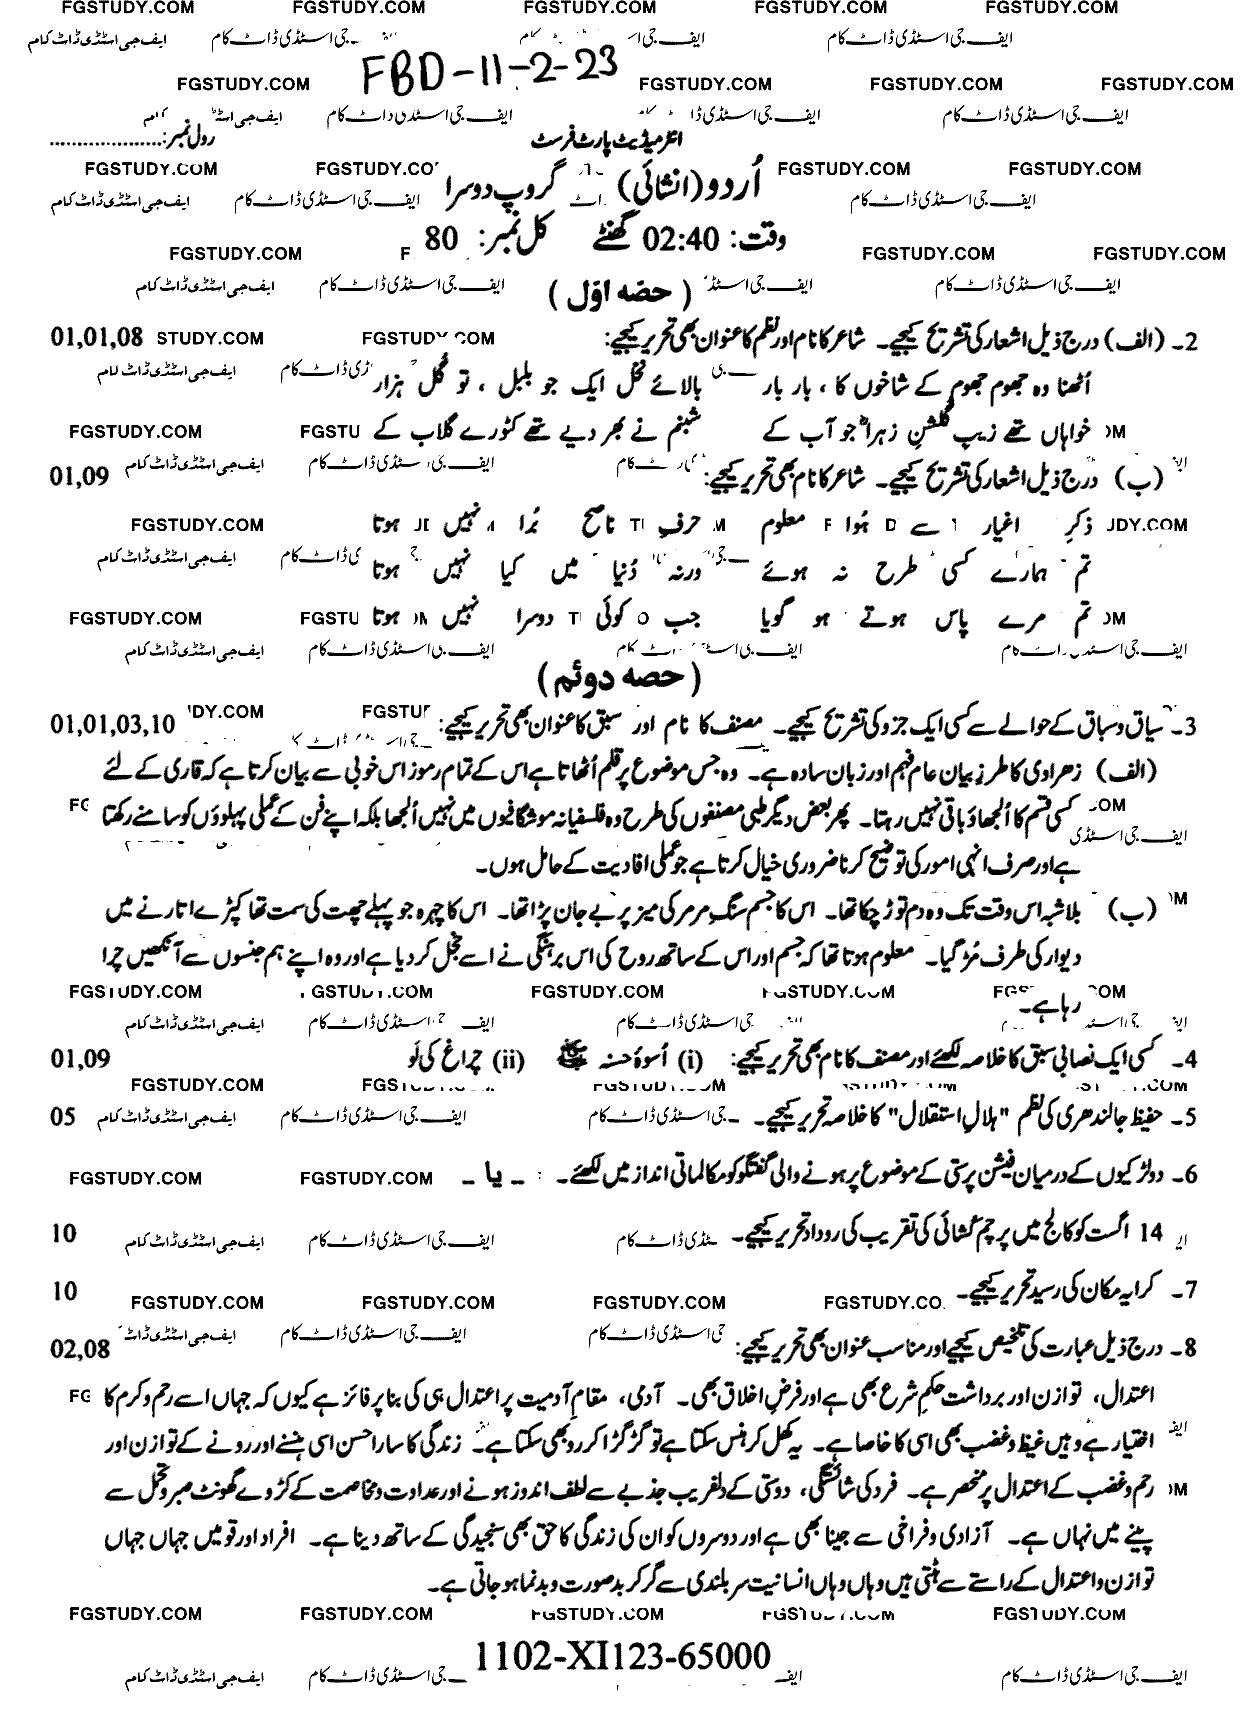 FBD-11-2-23
رول نمبر:.....................
انٹرمیڈیٹ پارٹ فرسٹ
اُردو (انشائی) گروپ دوسرا
وقت: 02:40 گھنٹے کل نمبر: 80
( حصہ اوّل )
2۔ (الف) درج ذیل اشعار کی تشریح کیجیے۔ شاعر کا نام اور نظم کا عنوان بھی تحریر کیجیے: 01,01,08
اُٹھنا وہ جھوم جھوم کے شاخوں کا ، بار بار بالائے نخل ایک جو بلبل ، تو گل ہزار
خواہاں تھے زیبِ گلشنِ زہراؑ جو آب کے شبنم نے بھر دیے تھے کٹورے گلاب کے
(ب) درج ذیل اشعار کی تشریح کیجیے۔ شاعر کا نام بھی تحریر کیجیے: 01,09
ذکرِ اغیار سے ہُوا معلوم حرفِ ناصح بُرا نہیں ہوتا
تم ہمارے کسی طرح نہ ہوئے ورنہ دُنیا میں کیا نہیں ہوتا
تم مرے پاس ہوتے ہو گویا جب کوئی دوسرا نہیں ہوتا
( حصہ دوئم )
3۔ سیاق و سباق کے حوالے سے کسی ایک جزو کی تشریح کیجیے۔ مصنف کا نام اور سبق کا عنوان بھی تحریر کیجیے: 01,01,03,10
(الف) زہراوی کا طرزِ بیان عام فہم اور زبان سادہ ہے۔ وہ جس موضوع پر قلم اُٹھاتا ہے اس کے تمام رموز اس خوبی سے بیان کرتا ہے کہ قاری کے لئے
کسی قسم کا اُلجھاؤ باقی نہیں رہتا۔ پھر بعض دیگر طبی مصنفوں کی طرح وہ فلسفیانہ موشگافیوں میں نہیں اُلجھا بلکہ اپنے فن کے عملی پہلوؤں کو سامنے رکھتا
ہے اور صرف انہی امور کی توضیح کرنا ضروری خیال کرتا ہے جو عملی افادیت کے حامل ہوں۔
(ب) بلاشبہ اس وقت تک وہ دم توڑ چکا تھا۔ اس کا جسم سنگِ مرمر کی میز پر بے جان پڑا تھا۔ اس کا چہرہ جو پہلے چھت کی سمت تھا کپڑے اتارنے میں
دیوار کی طرف مُڑ گیا۔ معلوم ہوتا تھا کہ جسم اور اس کے ساتھ روح کی اس برہنگی نے اسے خجل کر دیا ہے اور وہ اپنے ہم جنسوں سے آنکھیں چرا
رہا ہے۔
4۔ کسی ایک نصابی سبق کا خلاصہ لکھئے اور مصنف کا نام بھی تحریر کیجیے: (i) اُسوۂ حسنہ ﷺ (ii) چراغ کی لَو 01,09
5۔ حفیظ جالندھری کی نظم "ہلالِ استقلال" کا خلاصہ تحریر کیجیے۔ 05
6۔ دو لڑکیوں کے درمیان فیشن پرستی کے موضوع پر ہونے والی گفتگو کو مکالماتی انداز میں لکھئے۔ ۔ یا ۔
14 اگست کو کالج میں پرچم کشائی کی تقریب کی روداد تحریر کیجیے۔ 10
7۔ کرایہ مکان کی رسید تحریر کیجیے۔ 10
8۔ درج ذیل عبارت کی تلخیص کیجیے اور مناسب عنوان بھی تحریر کیجیے: 02,08
اعتدال، توازن اور برداشت حکمِ شرع بھی ہے اور فرضِ اخلاق بھی۔ آدمی، مقامِ آدمیت پر اعتدال ہی کی بنا پر فائز ہے کیوں کہ جہاں اسے رحم و کرم کا
اختیار ہے وہیں غیظ و غضب بھی اسی کا خاصا ہے۔ یہ کھل کر ہنس سکتا ہے تو گڑگڑا کر رو بھی سکتا ہے۔ زندگی کا سارا حسن اسی ہنسنے اور رونے کے توازن اور
رحم و غضب کے اعتدال پر منحصر ہے۔ فرد کی شائستگی، دوستی کے دلفریب جذبے سے لطف اندوز ہونے اور عداوت و مخاصمت کے کڑوے گھونٹ صبر و تحمل سے
پینے میں نہاں ہے۔ آزادی و فراخی سے جینا بھی ہے اور دوسروں کو ان کی زندگی کا حق بھی سنجیدگی کے ساتھ دینا ہے۔ افراد اور قومیں جہاں جہاں
توازن و اعتدال کے راستے سے ہٹتی ہیں وہاں وہاں انسانیت سر بلندی سے گر کر بدصورت و بدنما ہو جاتی ہے۔
1102-XI123-65000